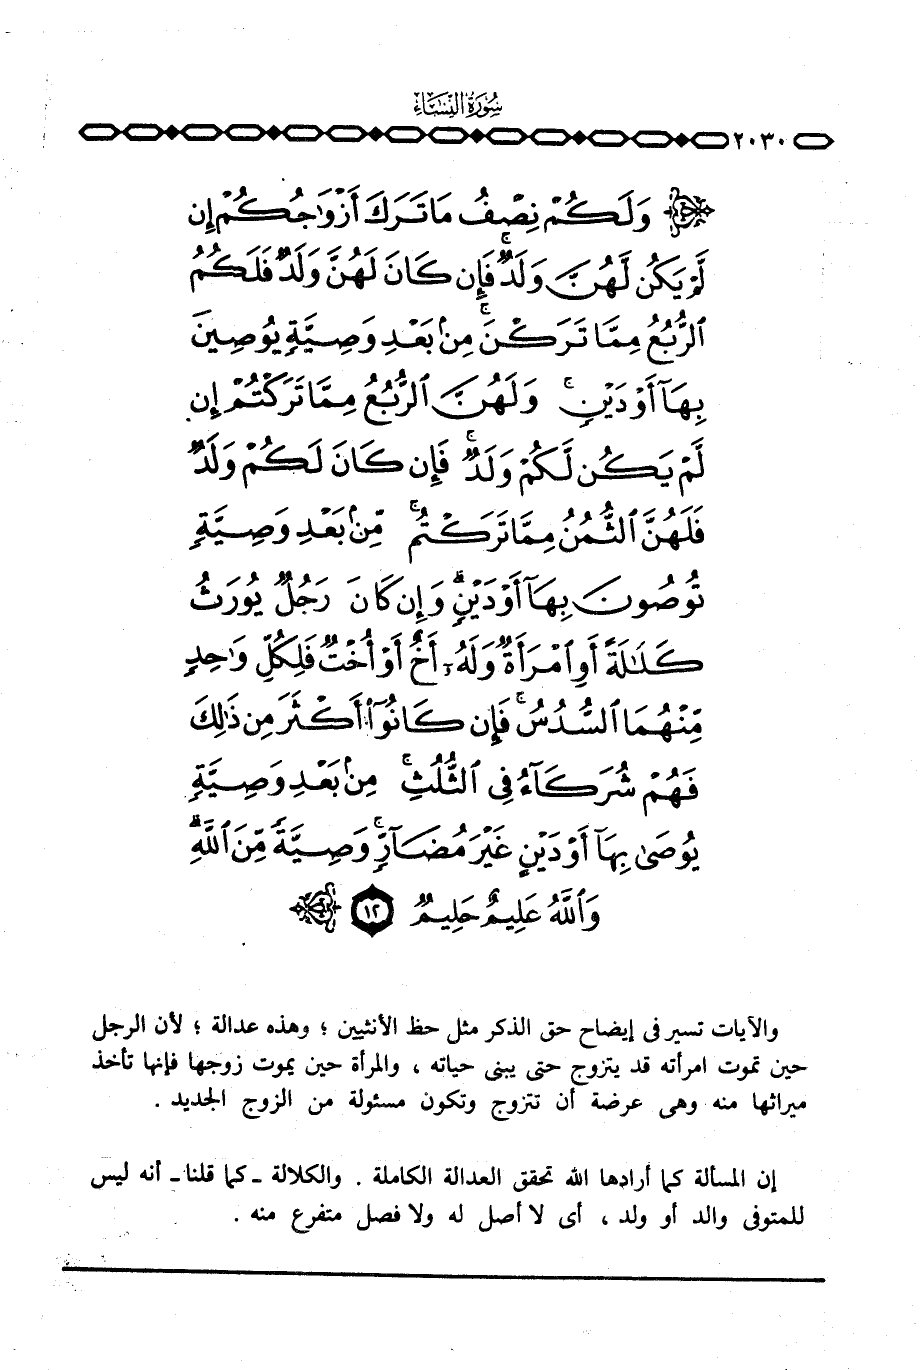 سُورَةُ النِّسَاءِ
٢٠٣٠
وَلَكُمْ نِصْفُ مَا تَرَكَ أَزْوَٰجُكُمْ إِن
لَّمْ يَكُن لَّهُنَّ وَلَدٌ ۚ فَإِن كَانَ لَهُنَّ وَلَدٌ فَلَكُمُ
ٱلرُّبُعُ مِمَّا تَرَكْنَ ۚ مِنۢ بَعْدِ وَصِيَّةٍ يُوصِينَ
بِهَآ أَوْ دَيْنٍ ۚ وَلَهُنَّ ٱلرُّبُعُ مِمَّا تَرَكْتُمْ إِن
لَّمْ يَكُن لَّكُمْ وَلَدٌ ۚ فَإِن كَانَ لَكُمْ وَلَدٌ
فَلَهُنَّ ٱلثُّمُنُ مِمَّا تَرَكْتُم ۚ مِّنۢ بَعْدِ وَصِيَّةٍ
تُوصُونَ بِهَآ أَوْ دَيْنٍ ۗ وَإِن كَانَ رَجُلٌ يُورَثُ
كَلَٰلَةً أَوِ ٱمْرَأَةٌ وَلَهُۥٓ أَخٌ أَوْ أُخْتٌ فَلِكُلِّ وَٰحِدٍ
مِّنْهُمَا ٱلسُّدُسُ ۚ فَإِن كَانُوٓا۟ أَكْثَرَ مِن ذَٰلِكَ
فَهُمْ شُرَكَآءُ فِى ٱلثُّلُثِ ۚ مِنۢ بَعْدِ وَصِيَّةٍ
يُوصَىٰ بِهَآ أَوْ دَيْنٍ غَيْرَ مُضَآرٍّ ۚ وَصِيَّةً مِّنَ ٱللَّهِ ۗ
وَٱللَّهُ عَلِيمٌ حَلِيمٌ ١٢
والآيات تسير فى إيضاح حق الذكر مثل حظ الأنثيين ؛ وهذه عدالة ؛ لأن الرجل
حين تموت امرأته قد يتزوج حتى يبنى حياته ، والمرأة حين يموت زوجها فإنها تأخذ
ميراثها منه وهى عرضة أن تتزوج وتكون مسئولة من الزوج الجديد .
إن المسألة كما أرادها الله تحقق العدالة الكاملة . والكلالة ـ كما قلنا ـ أنه ليس
للمتوفى والد أو ولد ، أى لا أصل له ولا فصل متفرع منه .